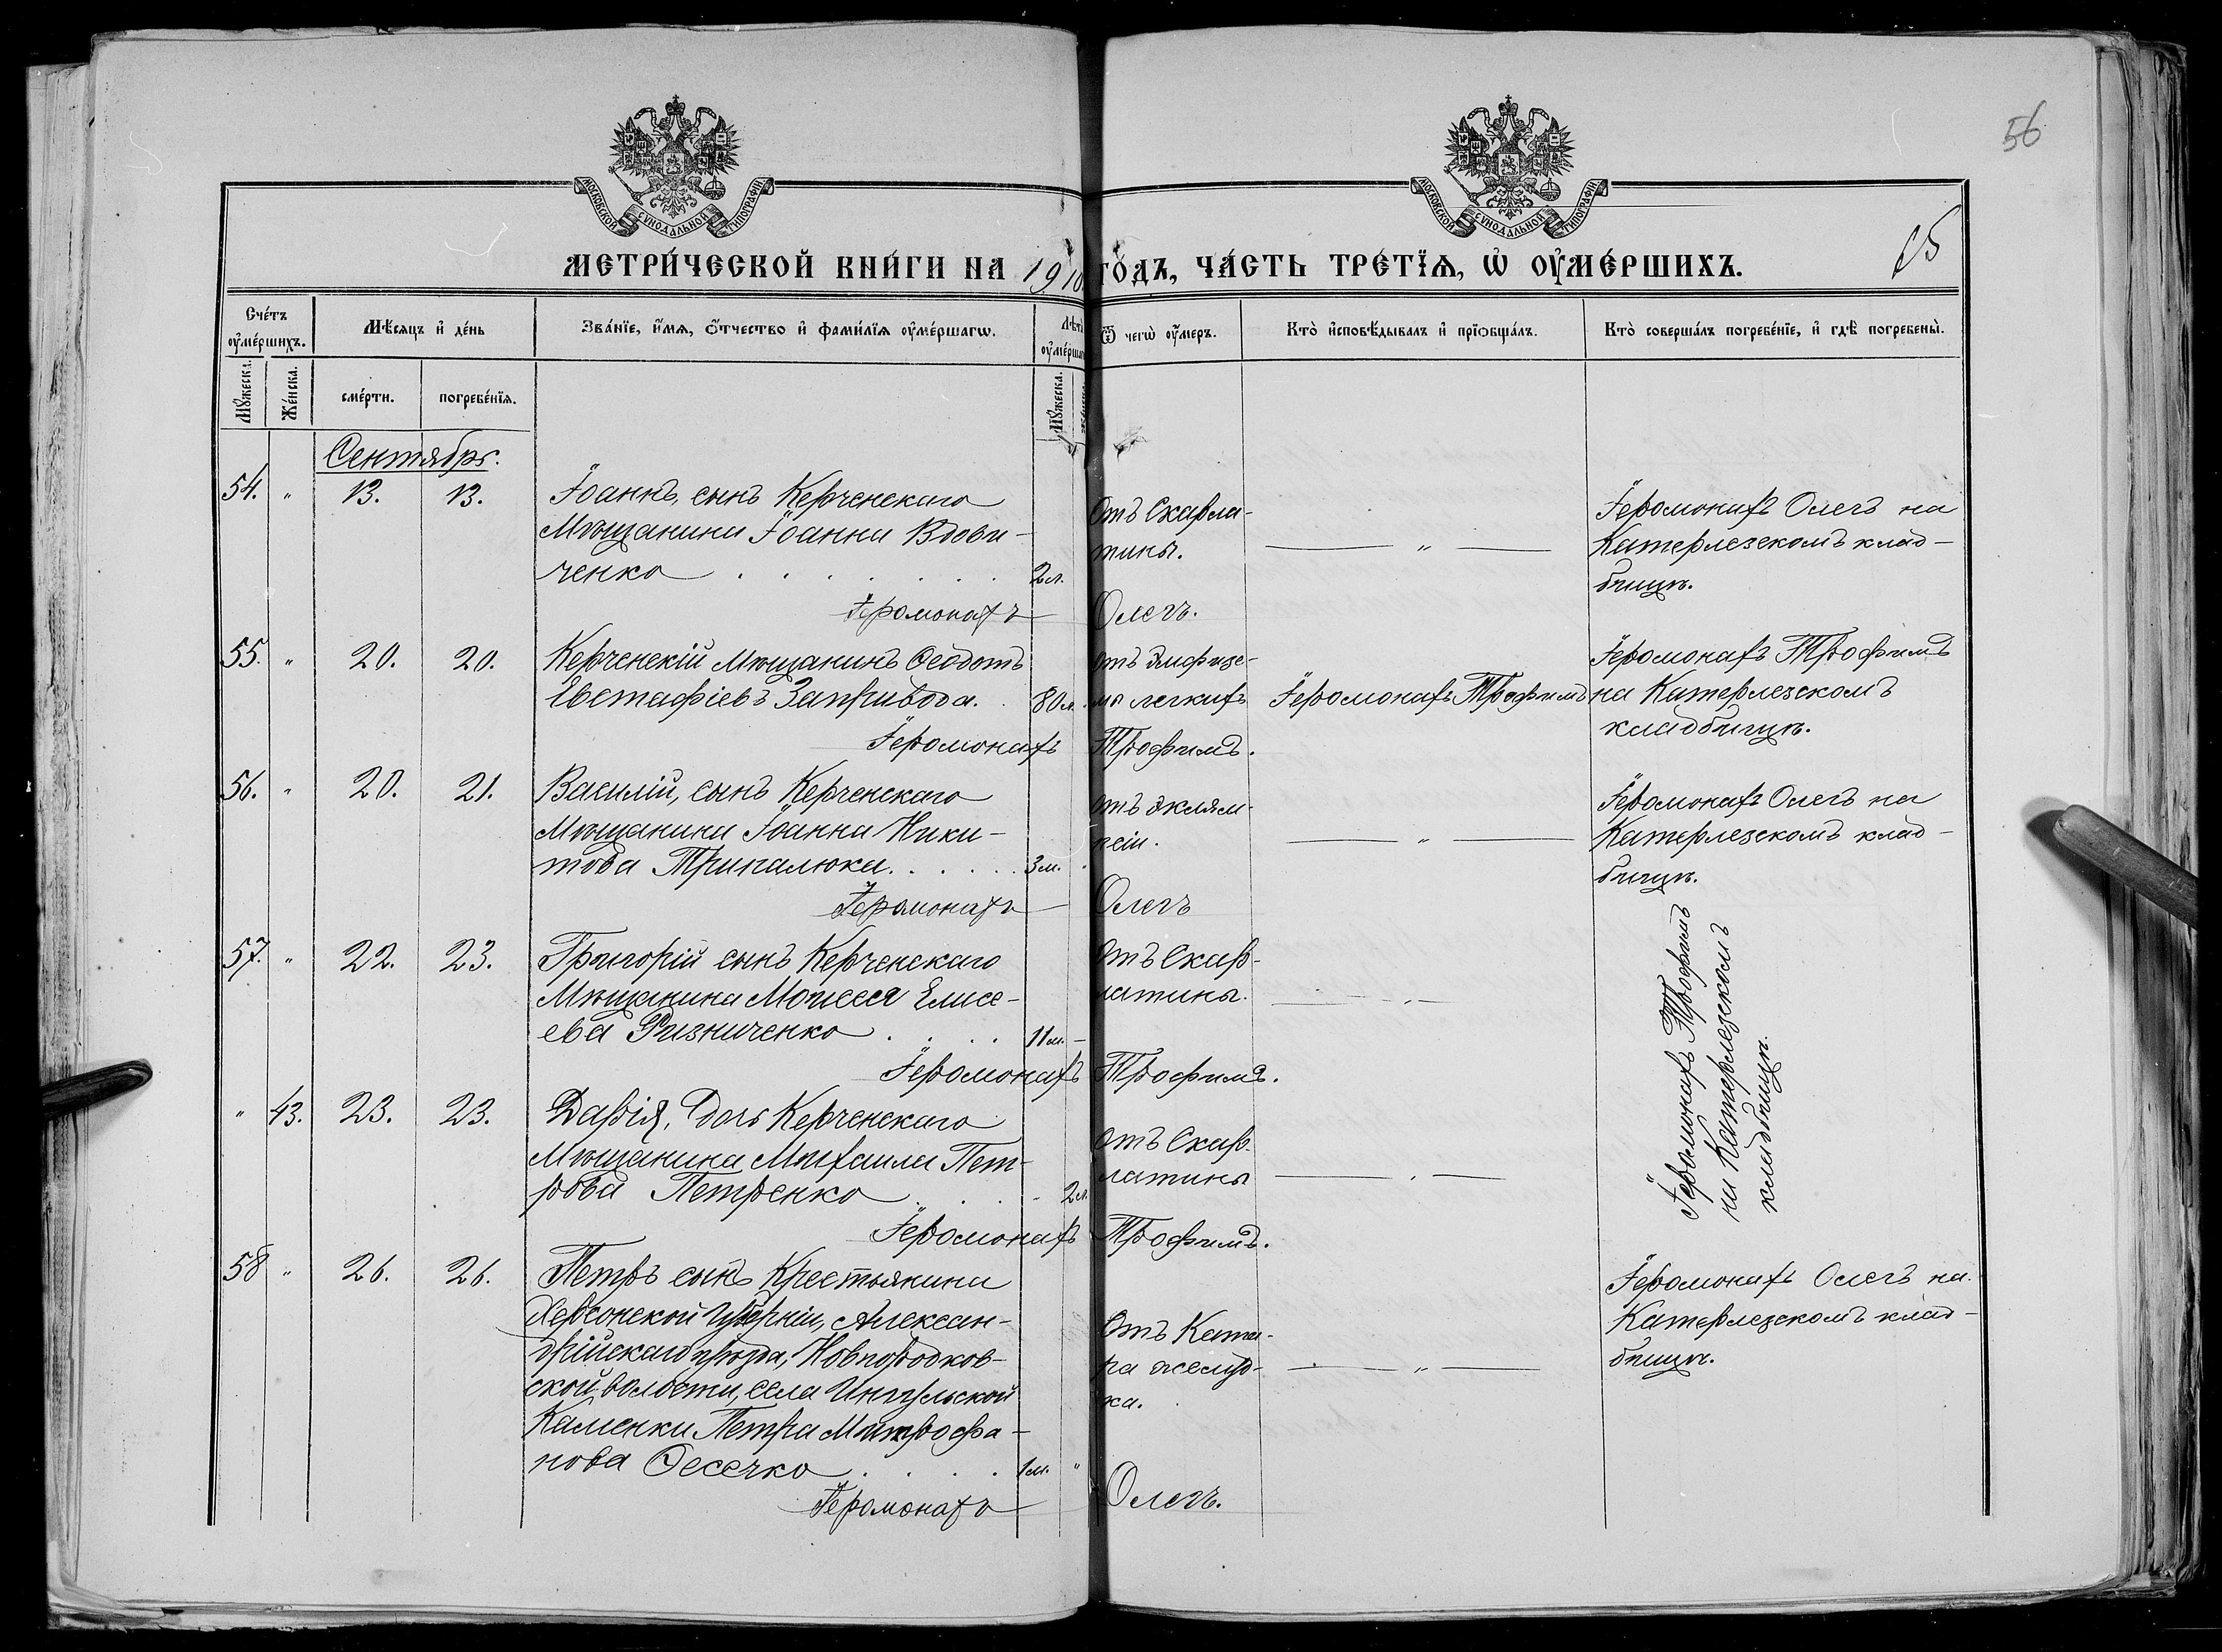 56
МОСКОВСКОЙ СѴНОДАЛЬНОЙ ТИПОГРАФІИ.
МОСКОВСКОЙ СѴНОДАЛЬНОЙ ТИПОГРАФІИ.
МЕТРИ́ЧЕСКОЙ КНИ́ГИ НА 1910 ГО́ДЪ, ЧА́СТЬ ТРЕ́ТЇѦ, Ѡ҆ ОУ҆МЕ́РШИХЪ.
Сче́тъ оу҆ме́ршихъ.
Мѣ́сѧцъ и҆ де́нь
Зва́нїе, и҆́мѧ, ѻ҆́тчество и҆ фами́лїѧ оу҆ме́ршагѡ.
Ѿ чегѡ̀ оу҆́меръ.
Кто̀ и҆сповѣ́дывалъ и҆ прїѻбща́лъ.
Кто̀ соверша́лъ погребе́нїе, и҆ гдѣ̀ погребены̀.
Мꙋ́жеска.
Же́нска.
сме́рти.
погребе́нїѧ.
Мꙋ́жеска.
Сентябрь.
54. " 13. 13. Іоаннъ, сынъ Керченскаго
Мѣщанина Іоанна Вдови-
ченко . . . . . . . 2 л.
Отъ Скарла-
тины.
— " —
Іеромонахъ Олегъ на
Катерлезскомъ клад-
бищѣ.
Іеромонахъ Олегъ.
55. " 20. 20. Керченскій Мѣщанинъ Ѳеодотъ
Евстафіевъ Запривода. . 80 л.
отъ эмфизе-
мы легкихъ
Іеромонахъ Трофимъ
Іеромонахъ Трофимъ
на Катерлезскомъ
кладбищѣ.
Іеромонахъ Трофимъ.
56. " 20. 21. Василій, сынъ Керченскаго
Мѣщанина Іоанна Ники-
това Трипалюка. . . . . . 3 м.
отъ эклям-
псіи.
— " —
Іеромонахъ Олегъ на
Катерлезскомъ клад-
бищѣ.
Іеромонахъ Олегъ
57. " 22. 23. Григорій сынъ Керченскаго
Мѣщанина Моисея Елисе-
ева Ризниченко . . . . 11 м. -
Отъ Скар-
латины.
— " —
Іеромонахъ Трофимъ
на Катерлезскомъ
кладбищѣ.
Іеромонахъ Трофимъ.
" 43. 23. 23. Дарія, дочь Керченскаго
Мѣщанина Михаила Пет-
рова Петренко . . . " 2 л.
Отъ Скар-
латины
— " —
Іеромонахъ Трофимъ.
58 " 26. 26. Петръ сынъ Крестьянина
Херсонской губерніи, Алексан-
дрійскаго уѣзда, Новгородков-
ской волости, села Ингульской
Каменки Петра Митрофа-
нова Ѳесечко . . . . 1 м. "
Отъ Ката-
ра желуд-
ка.
— " —
Іеромонахъ Олегъ на
Катерлезскомъ клад-
бищѣ.
Іеромонахъ Олегъ.